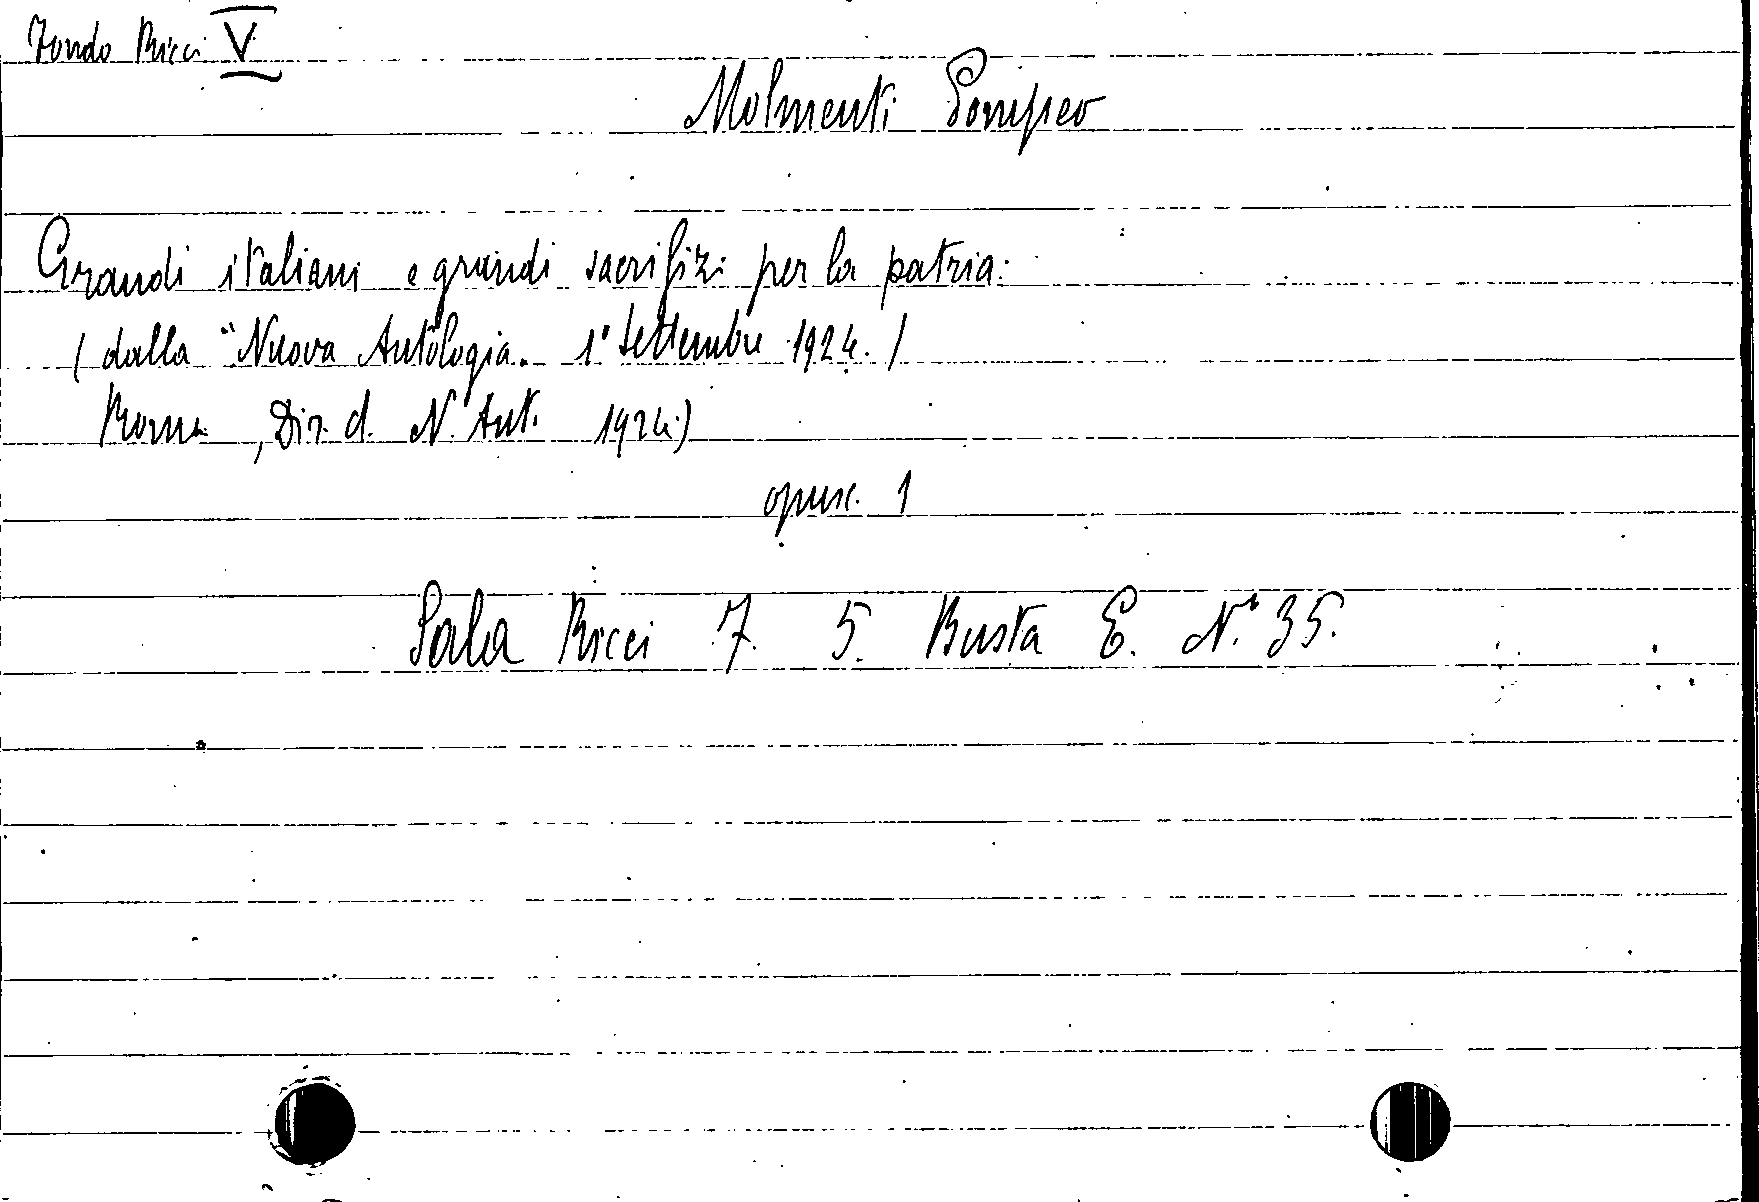 Fondo Ricci V
Molmenti Pompeo
Grandi italiani e grandi sacrifizi per la patria:
(dalla "Nuova Antologia. 1° Settembre 1924.)
Roma, Dir. d. N. Ant. 1924.)
opusc. 1
Sala Ricci 7. 5. Busta E. N.° 35.